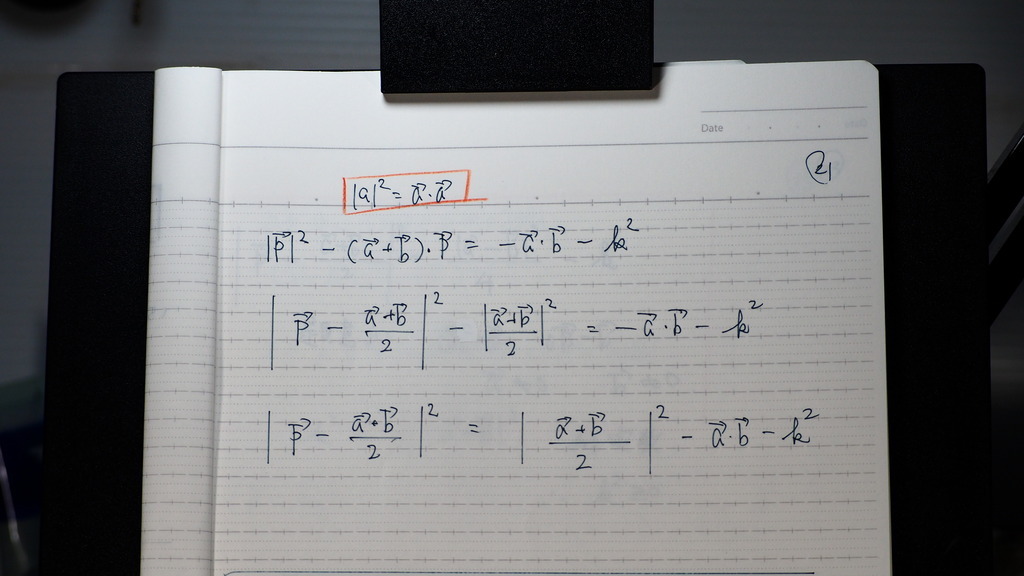 Date
21
|a|² = a⃗·a⃗
|p⃗|² − (a⃗+b⃗)·p⃗ = −a⃗·b⃗ − k²
|p⃗ − (a⃗+b⃗)/2|² − |(a⃗+b⃗)/2|² = −a⃗·b⃗ − k²
|p⃗ − (a⃗+b⃗)/2|² = |(a⃗+b⃗)/2|² − a⃗·b⃗ − k²